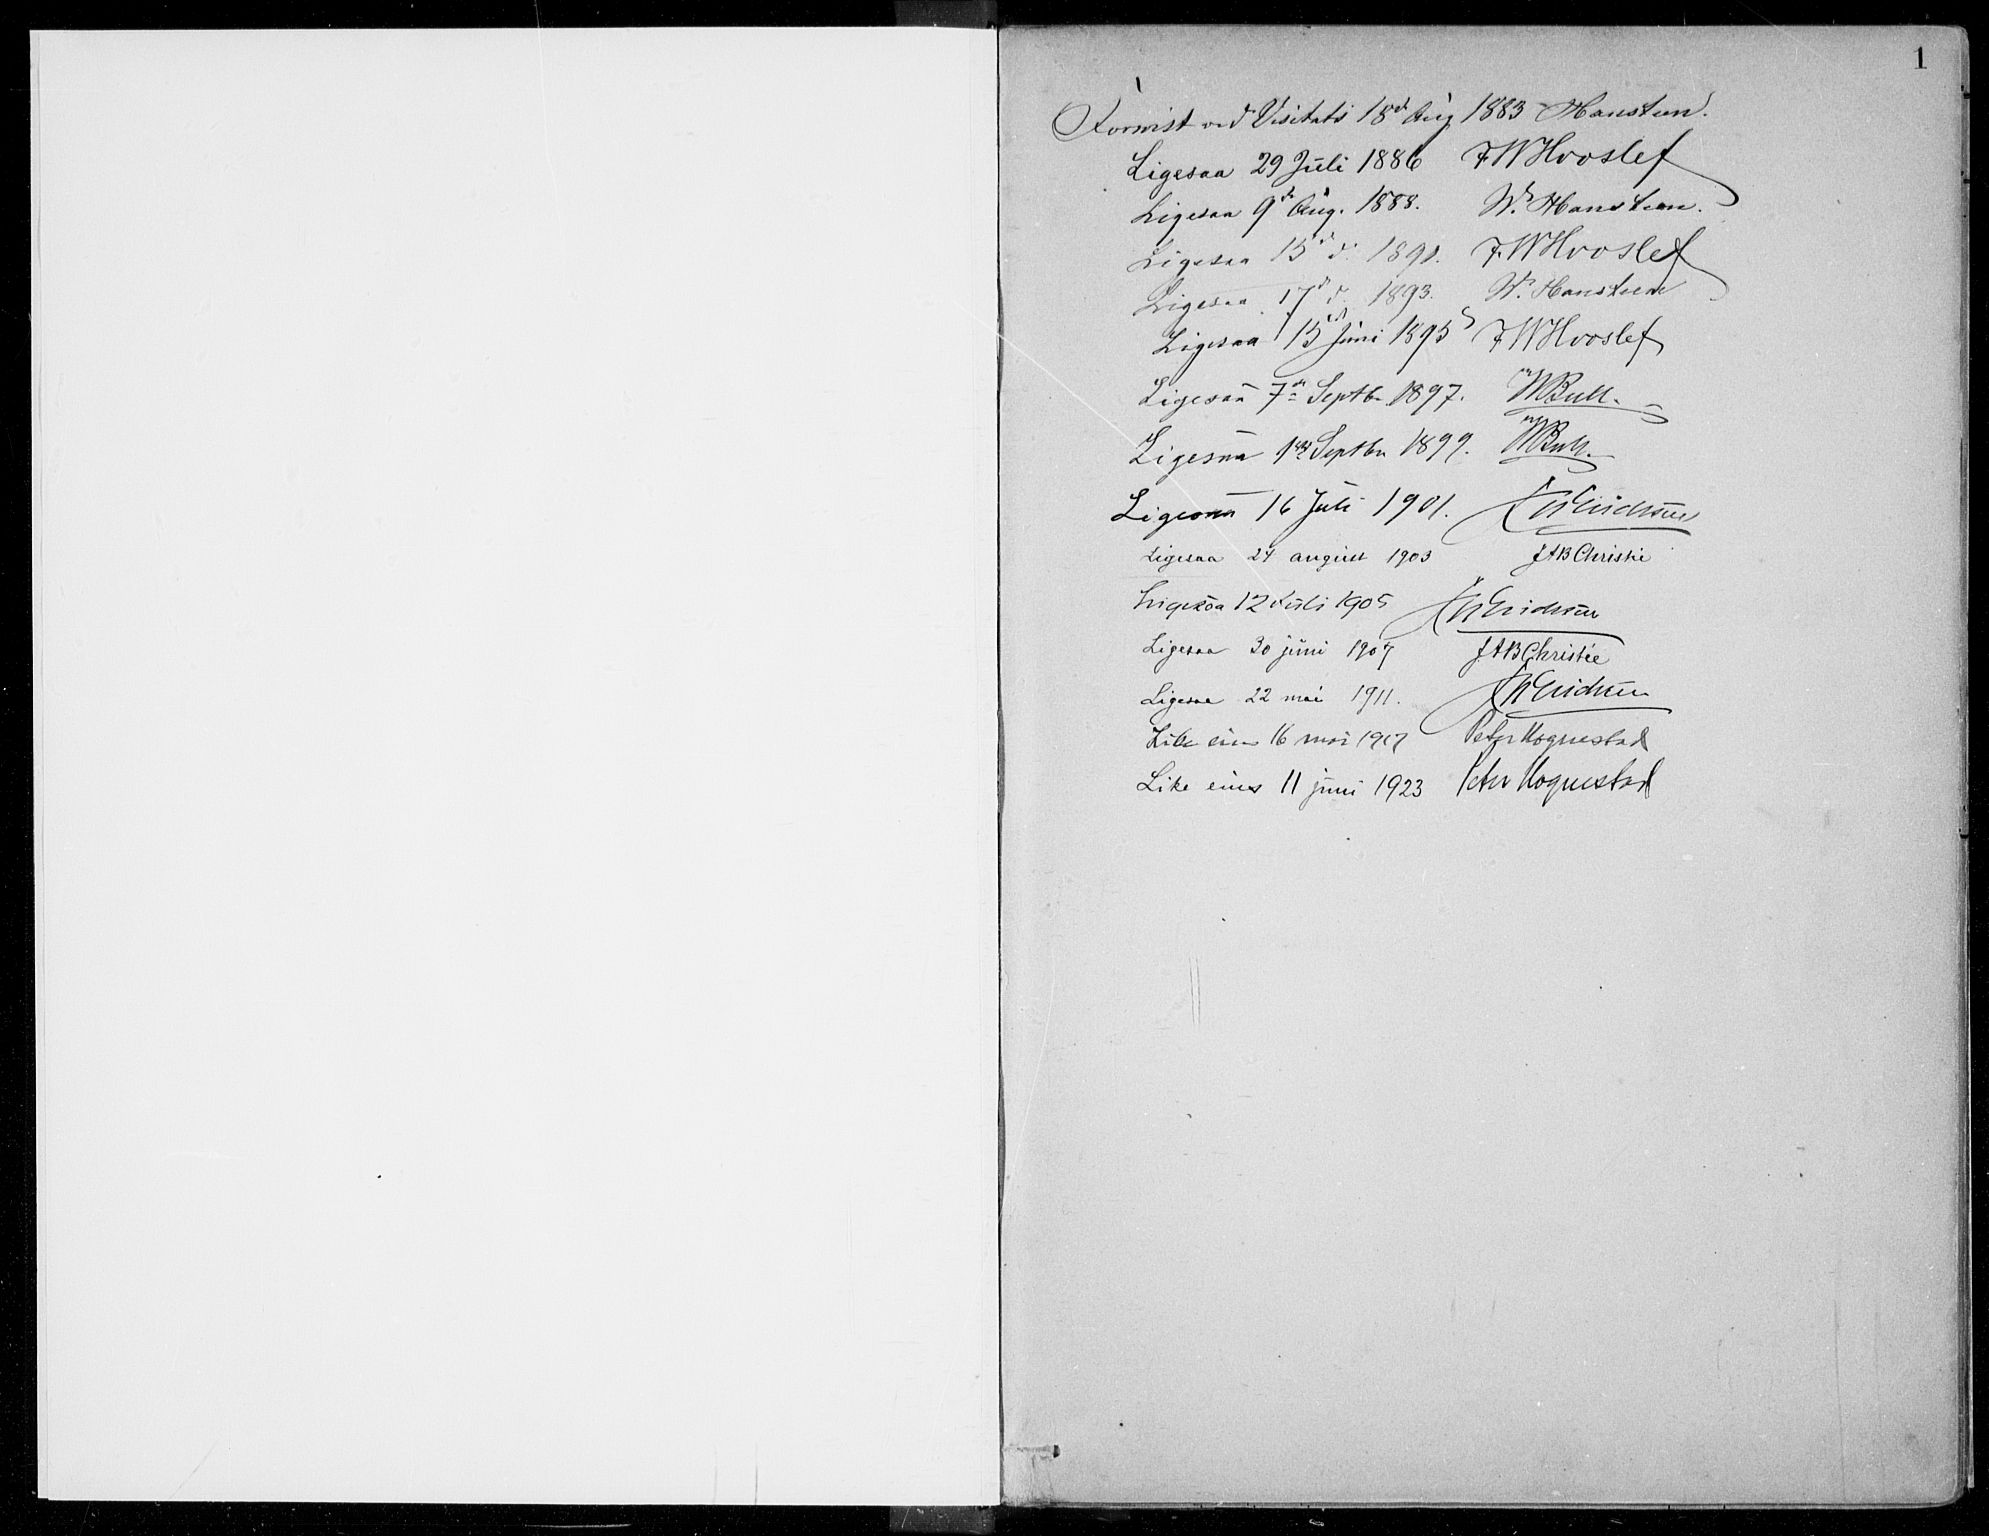 1
Forevist ved Visitats 18de Aug 1883 Hansteen.
Ligesaa 29 Juli 1886 F W Hvoslef
Ligesaa 9de Aug. 1888. W. Hansteen.
Ligesaa 15de d. 1890. F. W Hvoslef
Ligesaa 17de d. 1893. W. Hansteen
Ligesaa 15de Juni 1895 F W Hvoslef
Ligesaa 7de Septbr 1897. W Bull.
Ligesaa 1ste Septbr 1899. W Bull.
Ligesaa 16 Juli 1901. Erichsen
Ligesaa 24 august 1903 J A B Christie
Ligesaa 12 Juli 1905 Erichsen
Ligesaa 30 juni 1907 J A B Christie
Ligesaa 22 mai 1911. Erichsen
Like eins 16 mai 1917 Peter Hognestad
Like eins 11 juni 1923 Peter Hognestad